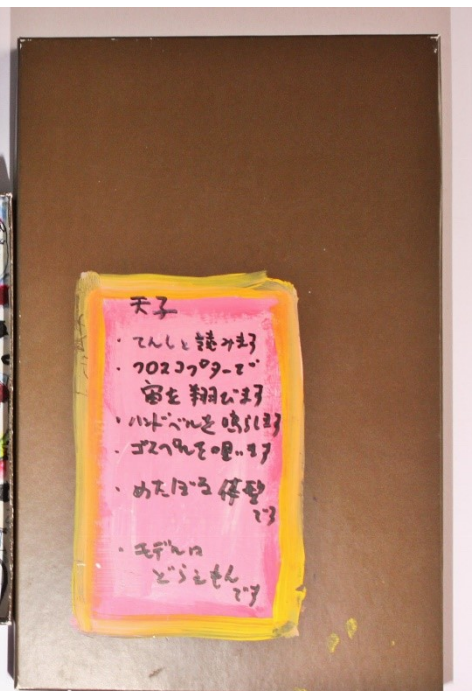 天子
・てんしと読みます
・クロスコプターで
宙を翔びます
・ハンドベルを鳴らします
・ゴスペルを唄います
・めたぼる体型
です
・モデルは
どらえもん
です